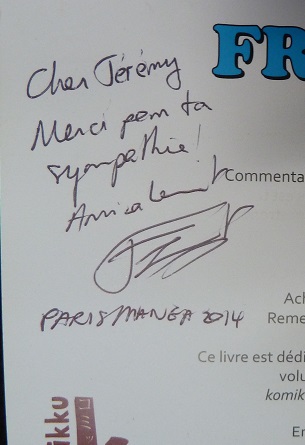 FR
Cher Jérémy
Merci pour ta
sympathie!
Amicalement
Commenta
PARIS MANGA 2014
Ach
Reme
Ce livre est dédi
volu
komik
En
ikku